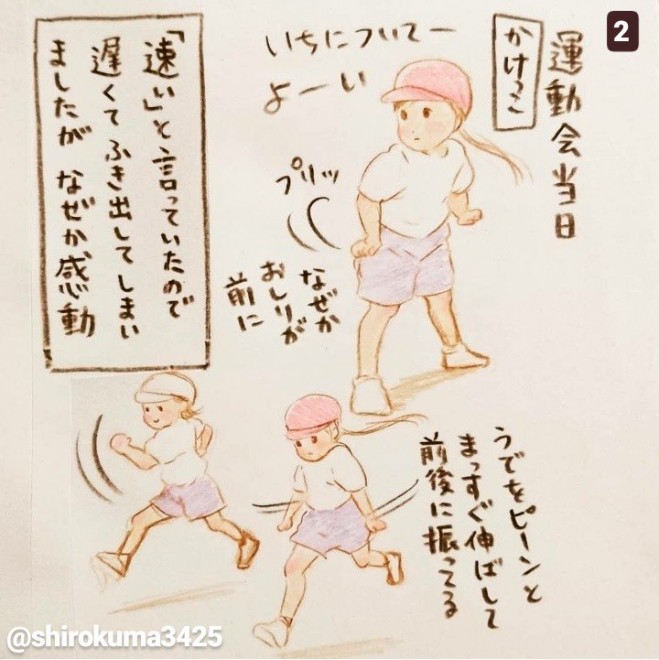 2
運動会当日
かけっこ
いちについてー
よーい
プリッ
なぜか
おしりが
前に
「速い」と言っていたので
遅くてふき出してしまい
ましたが なぜか感動
うでをピーンと
まっすぐ伸ばして
前後に振ってる
@shirokuma3425